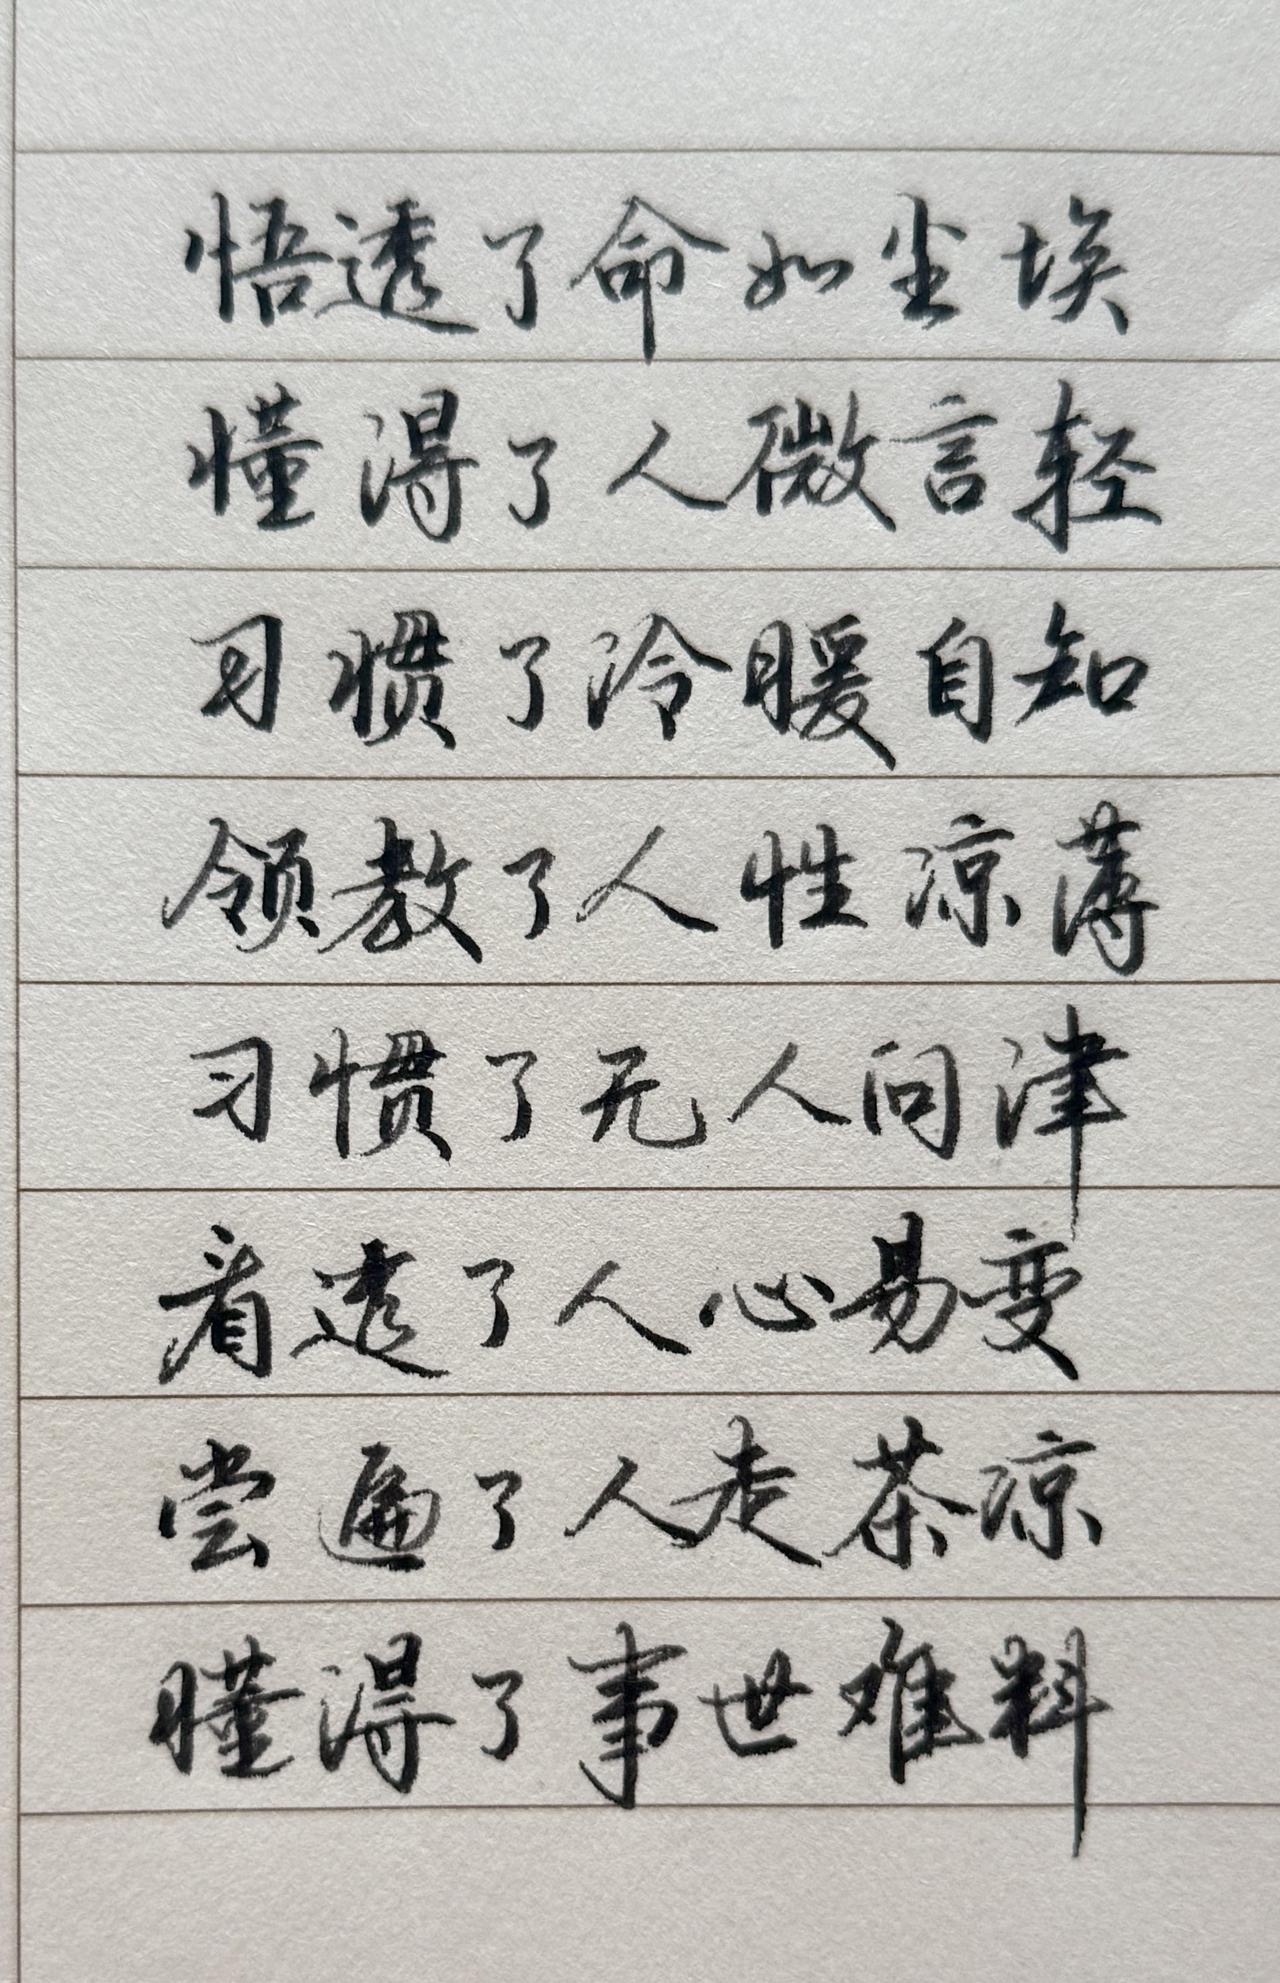 悟透了命如尘埃
懂得了人微言轻
习惯了冷暖自知
领教了人性凉薄
习惯了无人问津
看透了人心易变
尝遍了人走茶凉
懂得了事世难料